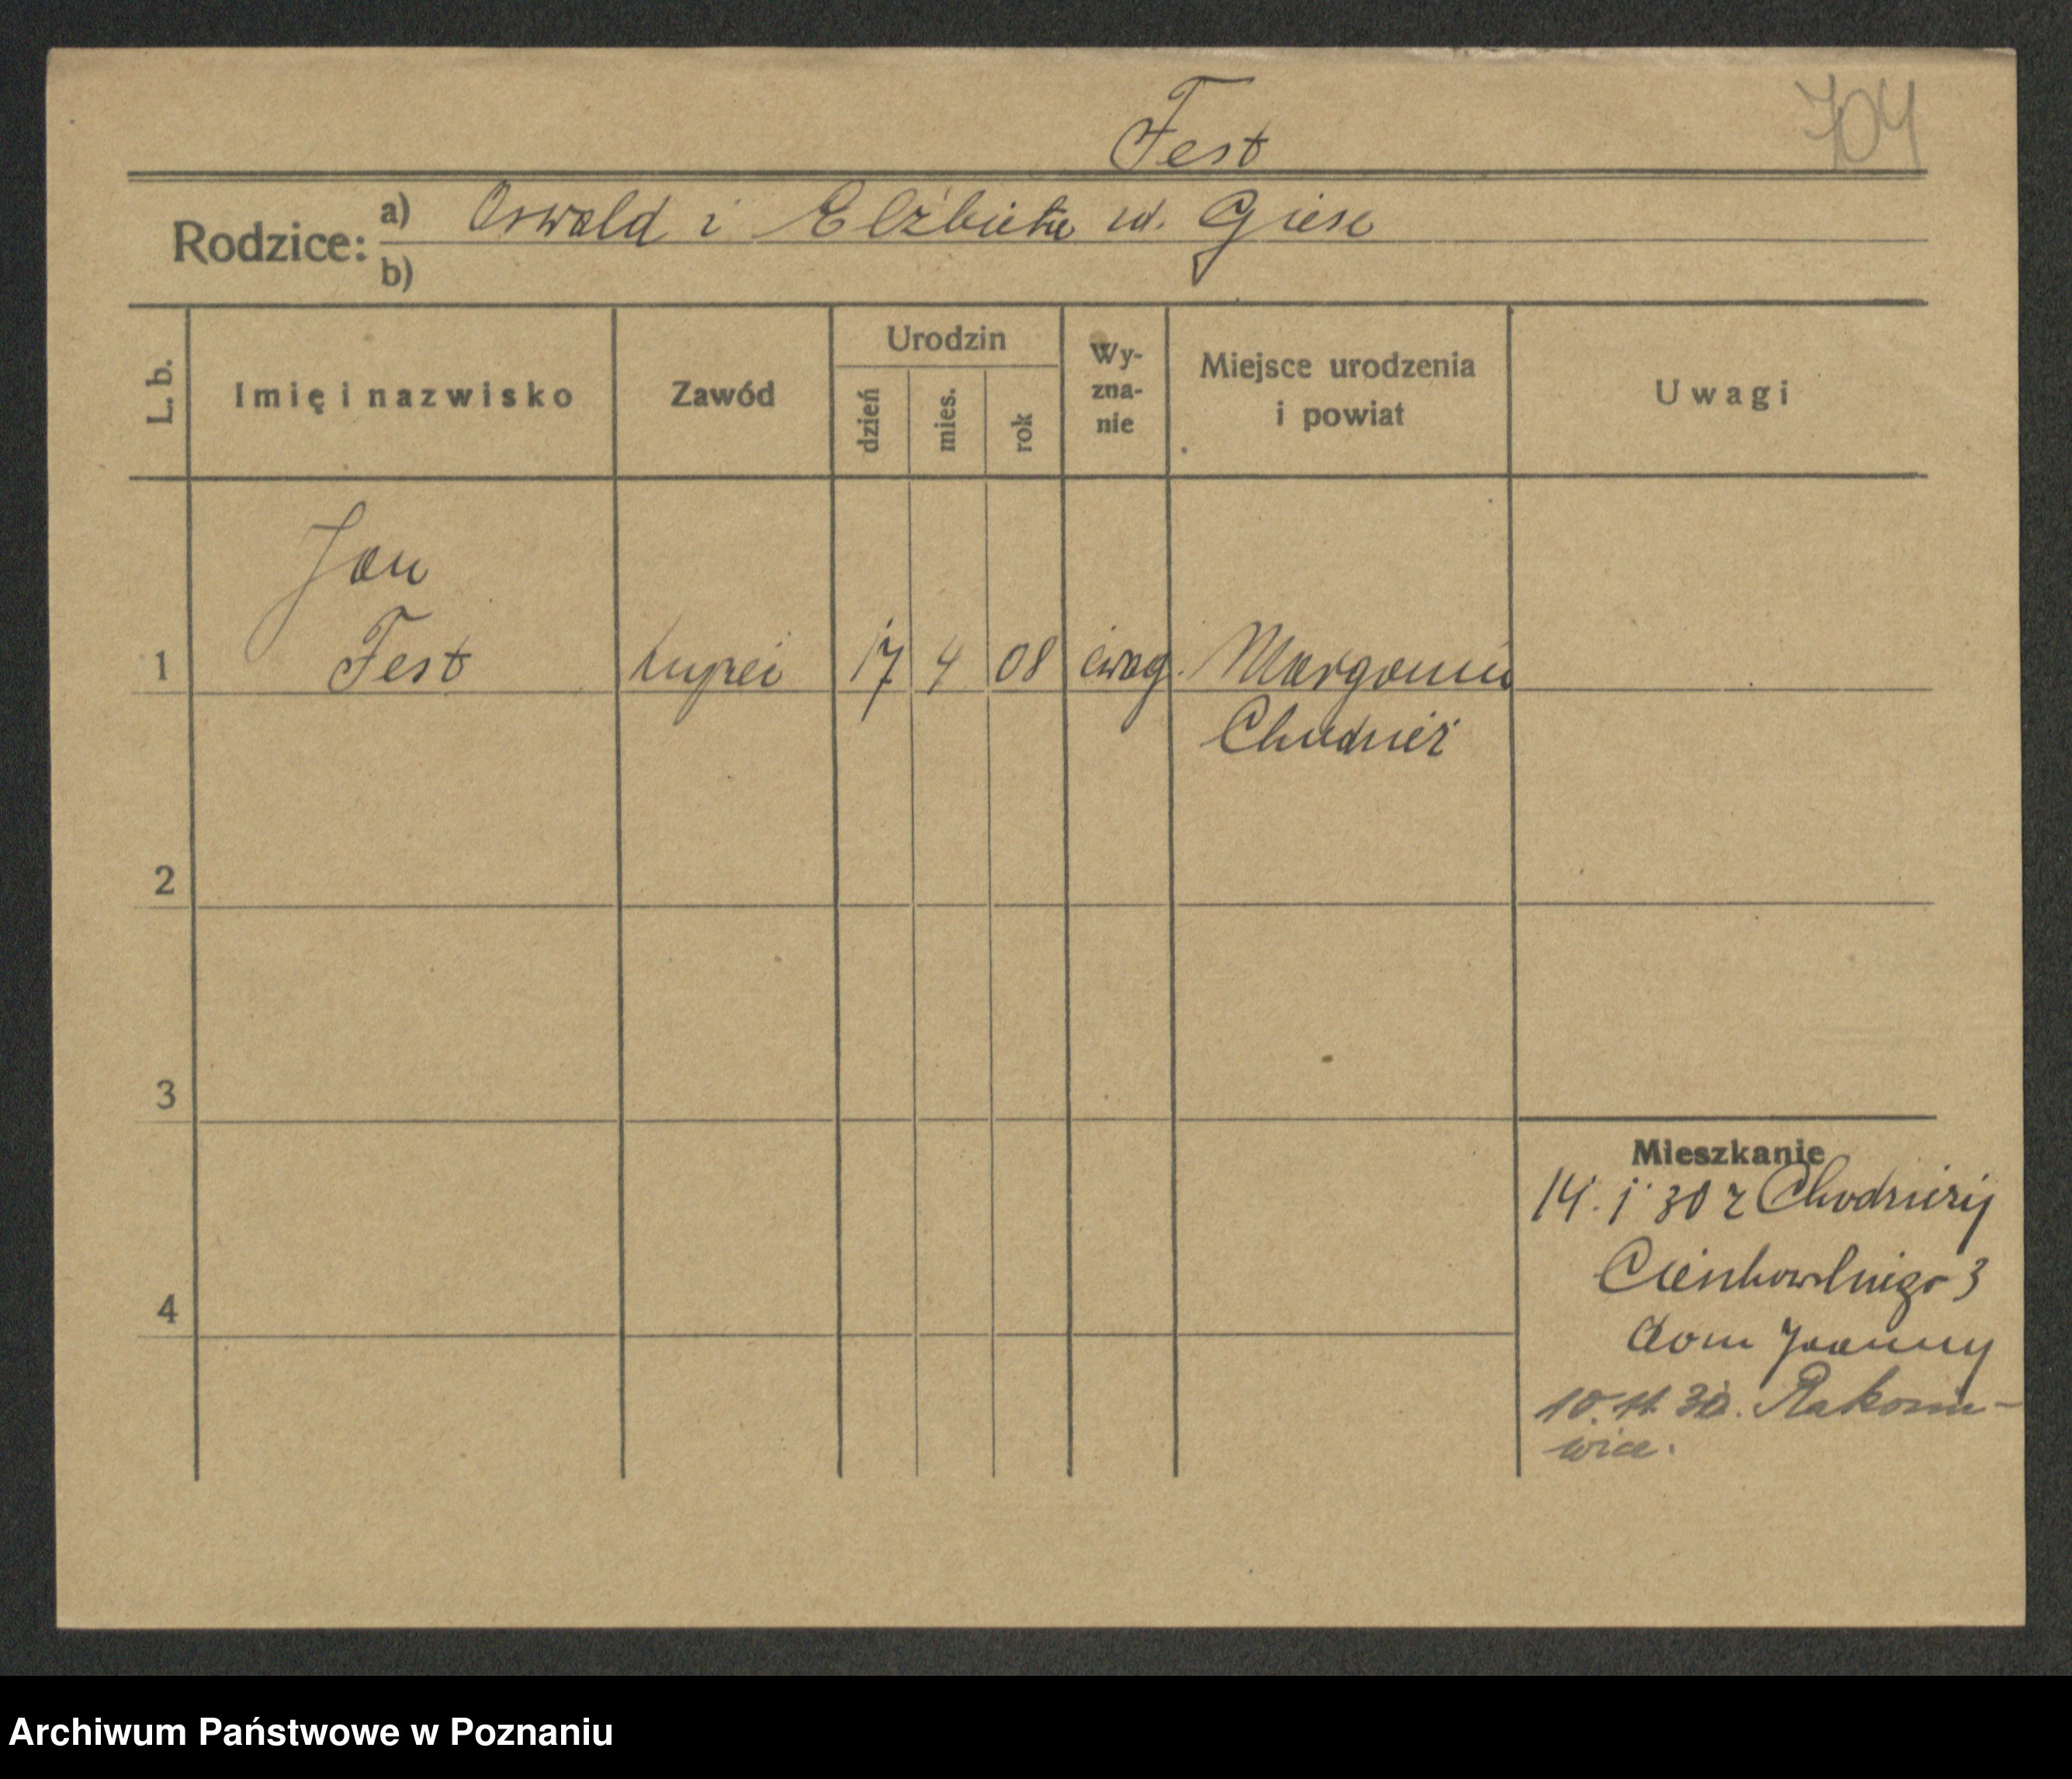 704
Fest
Rodzice: a) Oswald i Elżbieta ud. Giese
b)
L. b. Imię i nazwisko Zawód Urodzin dzień mies. rok Wy-zna-nie Miejsce urodzenia i powiat Uwagi
Jan
1 Fest kupei 17 4 08 ewag. Margonin
Chodzież
2
3
4
Mieszkanie
14. 1. 30 z Chodzieży
3
dom Joanny
10. 11. 30. Rakonie-
wice.
Archiwum Państwowe w Poznaniu